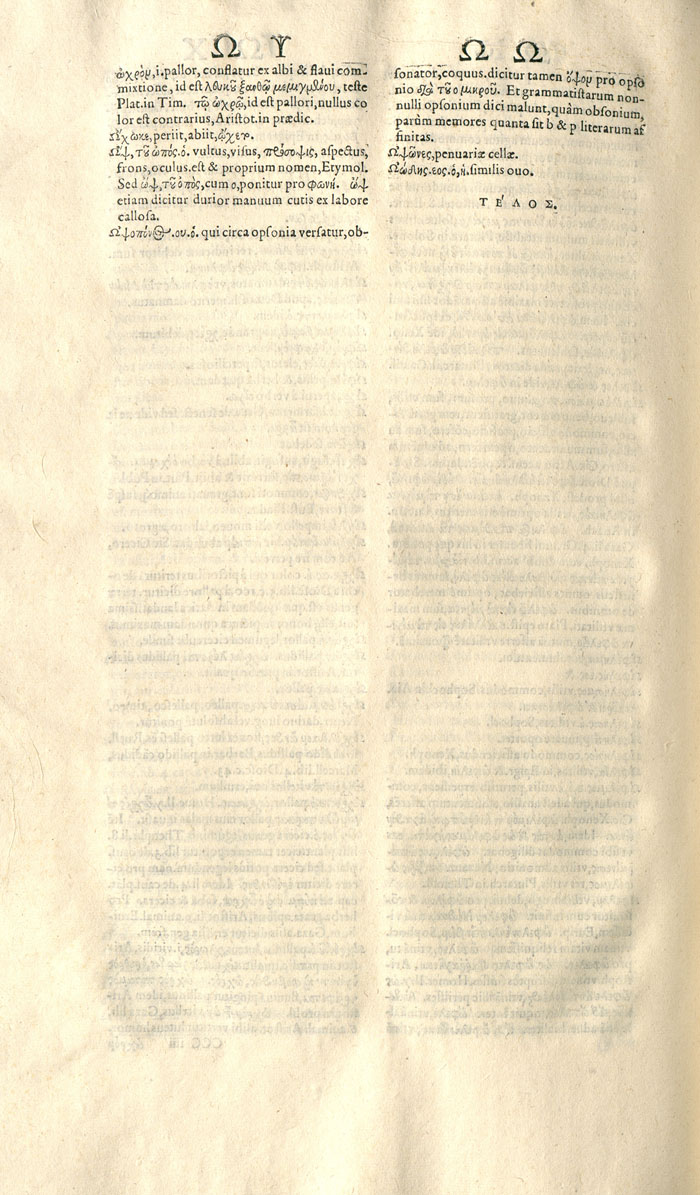 Ω Υ
ὠχρὸν, i. pallor, conflatur ex albi & flaui com-
mixtione, id est λδυκοῦ ξανθῷ μεμιγμένου, teste
Plat. in Tim. τῷ ὠχρῷ, id est pallori, nullus co
lor est contrarius, Aristot. in prædic.
Ωχωκε, periit, abiit, ᾤχετο.
Ωψ, τοῦ ὠπὸς. ὁ. vultus, visus, πρόσοψις, aspectus,
frons, oculus. est & proprium nomen, Etymol.
Sed ὢψ, τοῦ ὀπὸς, cum ο, ponitur pro φωνή. ὢψ
etiam dicitur durior manuum cutis ex labore
callosa.
Ωψοπόνος. ου. ὁ. qui circa opsonia versatur, ob-
Ω Ω
sonator, coquus. dicitur tamen ὄψον pro opso
nio διὰ τοῦ ο μικροῦ. Et grammatistarum non-
nulli opsonium dici malunt, quàm obsonium,
parùm memores quanta sit b & p literarum af
finitas.
Ωψῶνες, penuariæ cellæ.
Ωώδης. εος. ὁ, ἡ. similis ouo.
ΤΕ´ΛΟΣ.